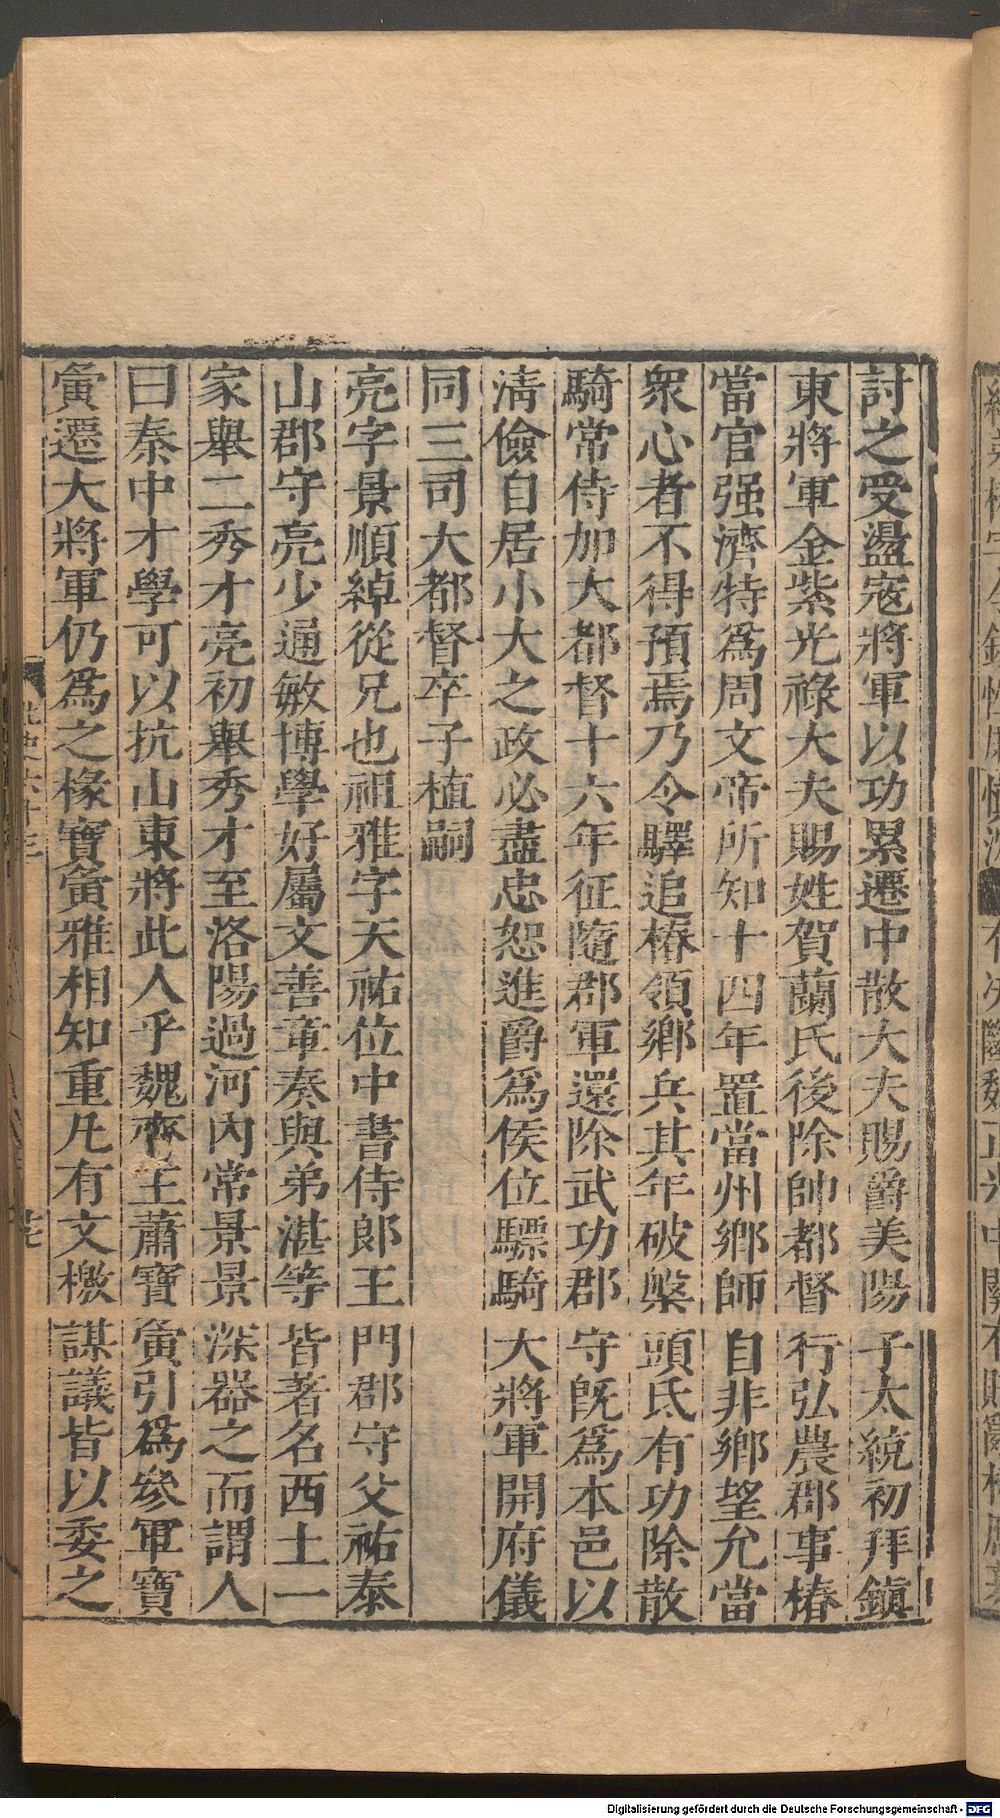 討之受盪寇將軍以功累遷中散大夫賜爵美陽子太統初拜鎮
東將軍金紫光祿大夫賜姓賀蘭氏後除帥都督行弘農郡事椿
當官强濟特爲周文帝所知十四年置當州鄉師自非鄉望允當
衆心者不得預焉乃令驛追椿領鄉兵其年破槃頭氐有功除散
騎常侍加大都督十六年征隨郡軍還除武功郡守旣爲本邑以
淸儉自居小大之政必盡忠恕進爵爲侯位驃騎大將軍開府儀
同三司大都督卒子植嗣
亮字景順綽從兄也祖雅字天祐位中書侍郞王門郡守父祐泰
山郡守亮少通敏博學好屬文善章奏與弟湛等皆著名西土一
家舉二秀才亮初舉秀才至洛陽過河內常景景深器之而謂人
曰秦中才學可以抗山東將此人乎魏齊王蕭寶夤引爲參軍寶
夤遷大將軍仍爲之椽寶夤雅相知重凡有文檄謀議皆以委之
北史六十三
Digitalisierung gefördert durch die Deutsche Forschungsgemeinschaft - DFG